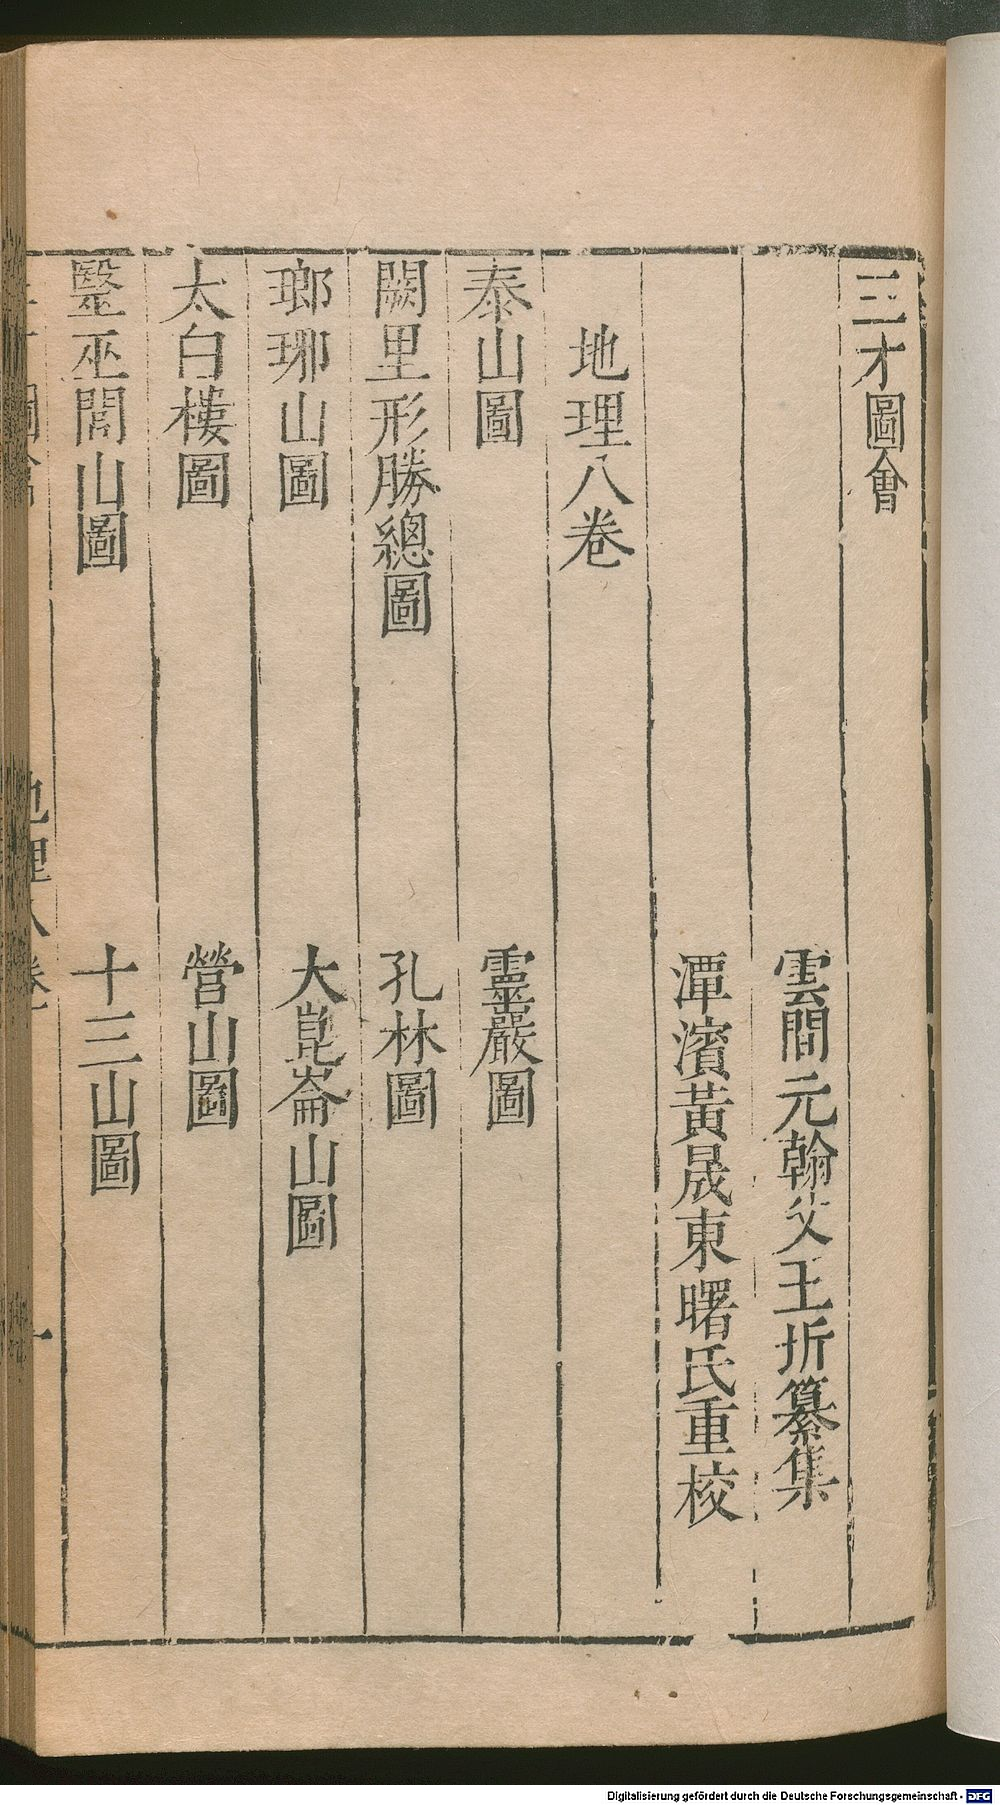 三才圖會
雲間元翰父王圻纂集
潭濱黃晟東曙氏重校
地理八卷
泰山圖　靈巖圖
闕里形勝總圖　孔林圖
瑯琊山圖　大崑崙山圖
太白樓圖　營山圖
毉巫閭山圖　十三山圖
地理八卷　一
Digitalisierung gefördert durch die Deutsche Forschungsgemeinschaft - DFG